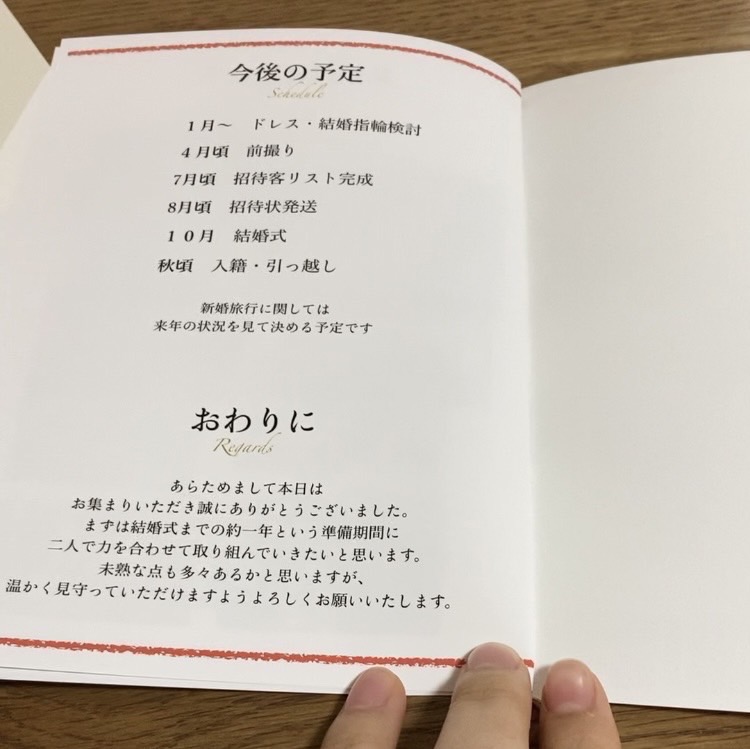 今後の予定
Schedule
1月〜　ドレス・結婚指輪検討
4月頃　前撮り
7月頃　招待客リスト完成
8月頃　招待状発送
10月　結婚式
秋頃　入籍・引っ越し
新婚旅行に関しては
来年の状況を見て決める予定です
おわりに
Regards
あらためまして本日は
お集まりいただき誠にありがとうございました。
まずは結婚式までの約一年という準備期間に
二人で力を合わせて取り組んでいきたいと思います。
未熟な点も多々あるかと思いますが、
温かく見守っていただけますようよろしくお願いいたします。